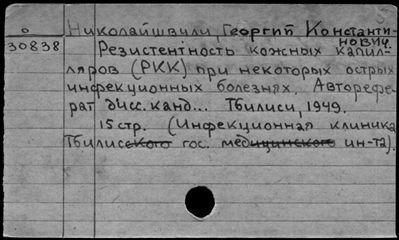 о
Николайшвили, Георгий Константи-
нович.
30838
Резистентность кожных капил-
ляров (РКК) при некоторых острых
инфекционных болезнях. Авторефе-
рат дисс. канд... Тбилиси, 1949.
15 стр. (Инфекционная клиника
Тбилисского гос. медицинского ин-та).